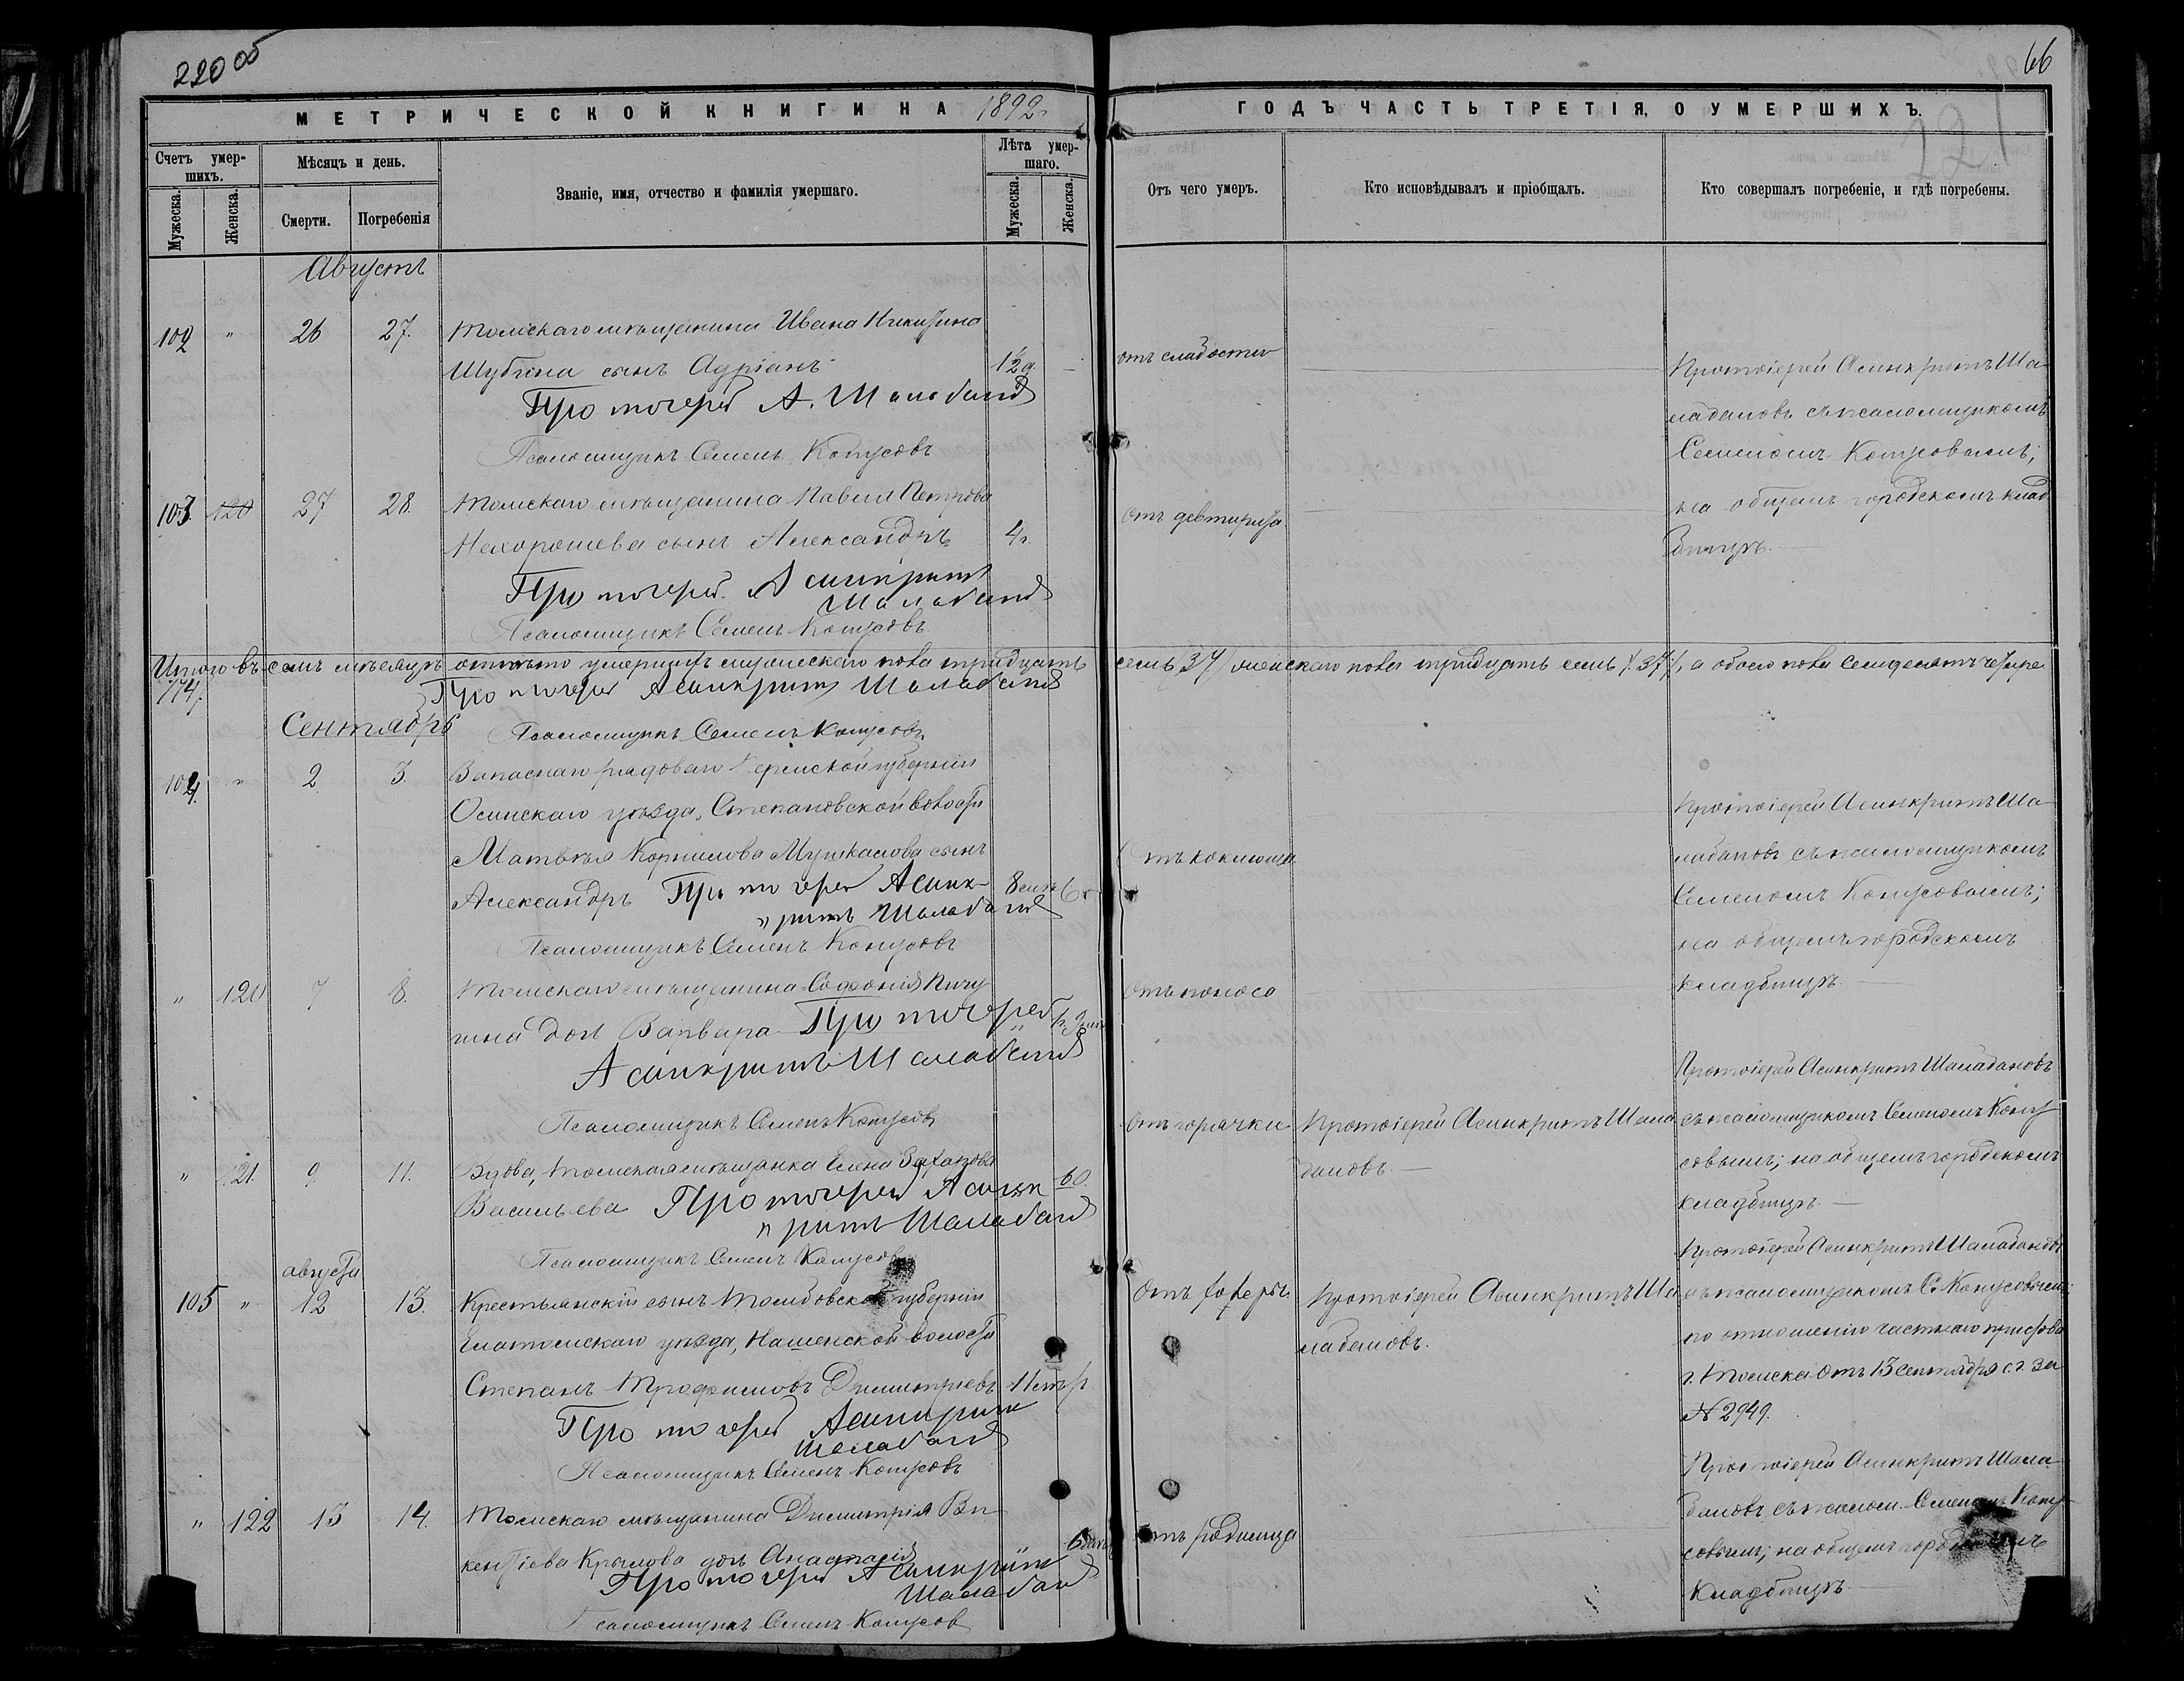 220 об
66
МЕТРИЧЕСКОЙ КНИГИ НА 1892 г.
ГОДЪ ЧАСТЬ ТРЕТІЯ, О УМЕРШИХЪ.
Счетъ умер-
шихъ.
Мѣсяцъ и день.
Званіе, имя, отчество и фамилія умершаго.
Лѣта умер-
шаго.
Мужеска.
Женска.
Смерти.
Погребенія
Мужеска.
Женска.
Отъ чего умеръ.
Кто исповѣдывалъ и пріобщалъ.
Кто совершалъ погребеніе, и гдѣ погребены.
Августъ
102 " 26 27. Томскаго мѣщанина Ивана Никитина
Шубина сынъ Адріанъ
отъ слабости
Протоіерей А. Шалабановъ
Псаломщикъ Семенъ Конусовъ
Протоіерей Асинкритъ Ша-
лабановъ съ псаломщикомъ
Семеномъ Конусовымъ;
на общемъ городскомъ клад-
бищѣ.
103. 120 27 28. Томскаго мѣщанина Павла Петрова
Нехорошева сынъ Александръ 4 г.
отъ дефтирита
Протоіерей Асинкритъ
Шалабановъ
Псаломщикъ Семенъ Конусовъ
Итого въ семъ мѣсяцѣ умершихъ мужескаго пола тридцать семь /37/ женскаго пола тридцать семь /37/, а обоего пола семьдесятъ четыре
/74/.
Протоіерей Асинкритъ Шалабановъ
Сентябрь
Псаломщикъ Семенъ Конусовъ
104. " 2 3. Запаснаго рядоваго Пермской губерніи
Осинскаго уѣзда, Степановской волости
Матвѣя Корнилова сынъ
Александръ
Отъ коклюша
Протоіерей Асинк-
ритъ Шалабановъ
Псаломщикъ Семенъ Конусовъ
Протоіерей Асинкритъ Ша-
лабановъ съ псаломщикомъ
Семеномъ Конусовымъ;
на общемъ городскомъ
кладбищѣ.
" 120 7 8. Томскаго мѣщанина Софонія Пичу-
гина дочь Варвара
Отъ поноса
Протоіерей
Асинкритъ Шалабановъ
Псаломщикъ Семенъ Конусовъ
" 121. 9. 11. Вдова, Томская мѣщанка Елена Захарова
Васильева 60.
Отъ горячки
Протоіерей Асинкритъ Шала-
бановъ.
Протоіерей Асинкритъ Шалабановъ
съ псаломщикомъ Семеномъ Кону-
совымъ; на общемъ городскомъ
кладбищѣ.
Протоіерей Асинк-
ритъ Шалабановъ
Псаломщикъ Семенъ Конусовъ
августа
105 " 12 13. Крестьянскій сынъ Тамбовской губерніи
Елатомскаго уѣзда, волости
Степанъ Трофимовъ Димитріевъ
Отъ холеры
Протоіерей Асинкритъ Ша-
лабановъ.
Протоіерей Асинкритъ Шалабановъ
съ псаломщикомъ С. Конусовымъ;
по отношенію частнаго пристава
г. Томска отъ 13 сентября с. г. за
№ 2949.
Протоіерей Асинкритъ
Шалабановъ
Псаломщикъ Семенъ Конусовъ
" 122 13 14. Томскаго мѣщанина Димитрія Ви-
кентіева Крылова дочь Анастасія
отъ родимца
Протоіерей Асинкритъ
Шалабановъ
Псаломщикъ Семенъ Конусовъ
Протоіерей Асинкритъ Шала-
бановъ съ псалом. Семеномъ Кону-
совымъ; на общемъ городскомъ
кладбищѣ